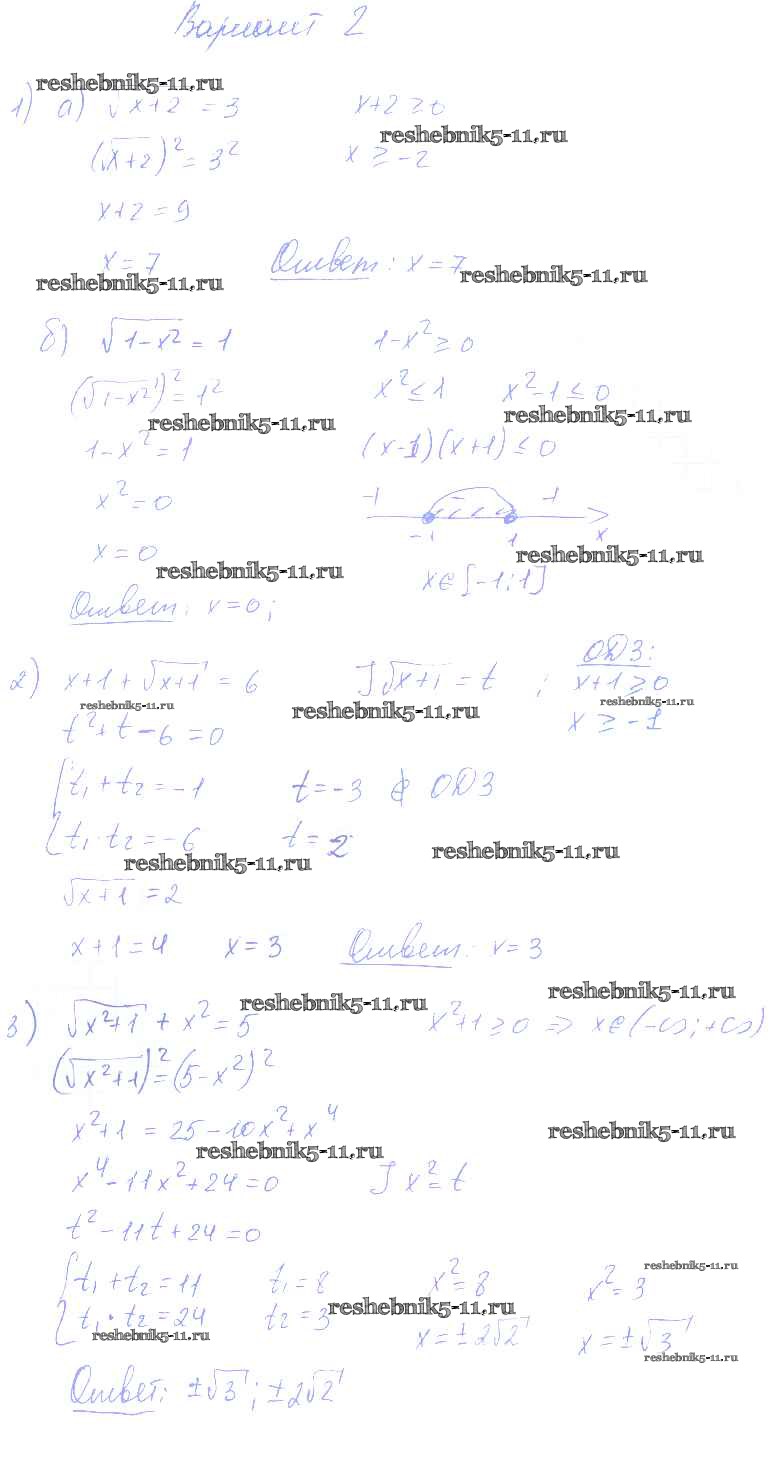 Вариант 2
reshebnik5-11.ru
1) а) √x+2 = 3 x+2 ≥ 0
reshebnik5-11.ru
(√x+2)² = 3² x ≥ -2
x+2 = 9
x = 7 Ответ: x = 7
reshebnik5-11.ru reshebnik5-11.ru
б) √1-x² = 1 1-x² ≥ 0
(√1-x²)² = 1² x² ≤ 1 x²-1 ≤ 0
reshebnik5-11.ru reshebnik5-11.ru
1-x² = 1 (x-1)(x+1) ≤ 0
x² = 0 -1 - -1
x = 0 -1 1 x
reshebnik5-11.ru reshebnik5-11.ru
x∈[-1;1]
Ответ: x=0;
ОДЗ:
2) x+1+√x+1 = 6 ] √x+1 = t ; x+1 ≥ 0
reshebnik5-11.ru reshebnik5-11.ru reshebnik5-11.ru
t²+t-6 = 0 x ≥ -1
{t₁+t₂ = -1 t = -3 ∉ ОДЗ
{t₁·t₂ = -6 t = 2
reshebnik5-11.ru reshebnik5-11.ru
√x+1 = 2
x+1 = 4 x = 3 Ответ: x = 3
reshebnik5-11.ru reshebnik5-11.ru
3) √x²+1 + x² = 5 x²+1 ≥ 0 => x∈(-∞;+∞)
(√x²+1)² = (5-x²)²
x²+1 = 25-10x²+x⁴
reshebnik5-11.ru reshebnik5-11.ru
x⁴-11x²+24 = 0 ] x² = t
t²-11t+24 = 0
reshebnik5-11.ru
{t₁+t₂ = 11 t₁ = 8 x² = 8 x² = 3
{t₁·t₂ = 24 t₂ = 3
reshebnik5-11.ru reshebnik5-11.ru
x = ±2√2 x = ±√3
reshebnik5-11.ru
Ответ: ±√3; ±2√2